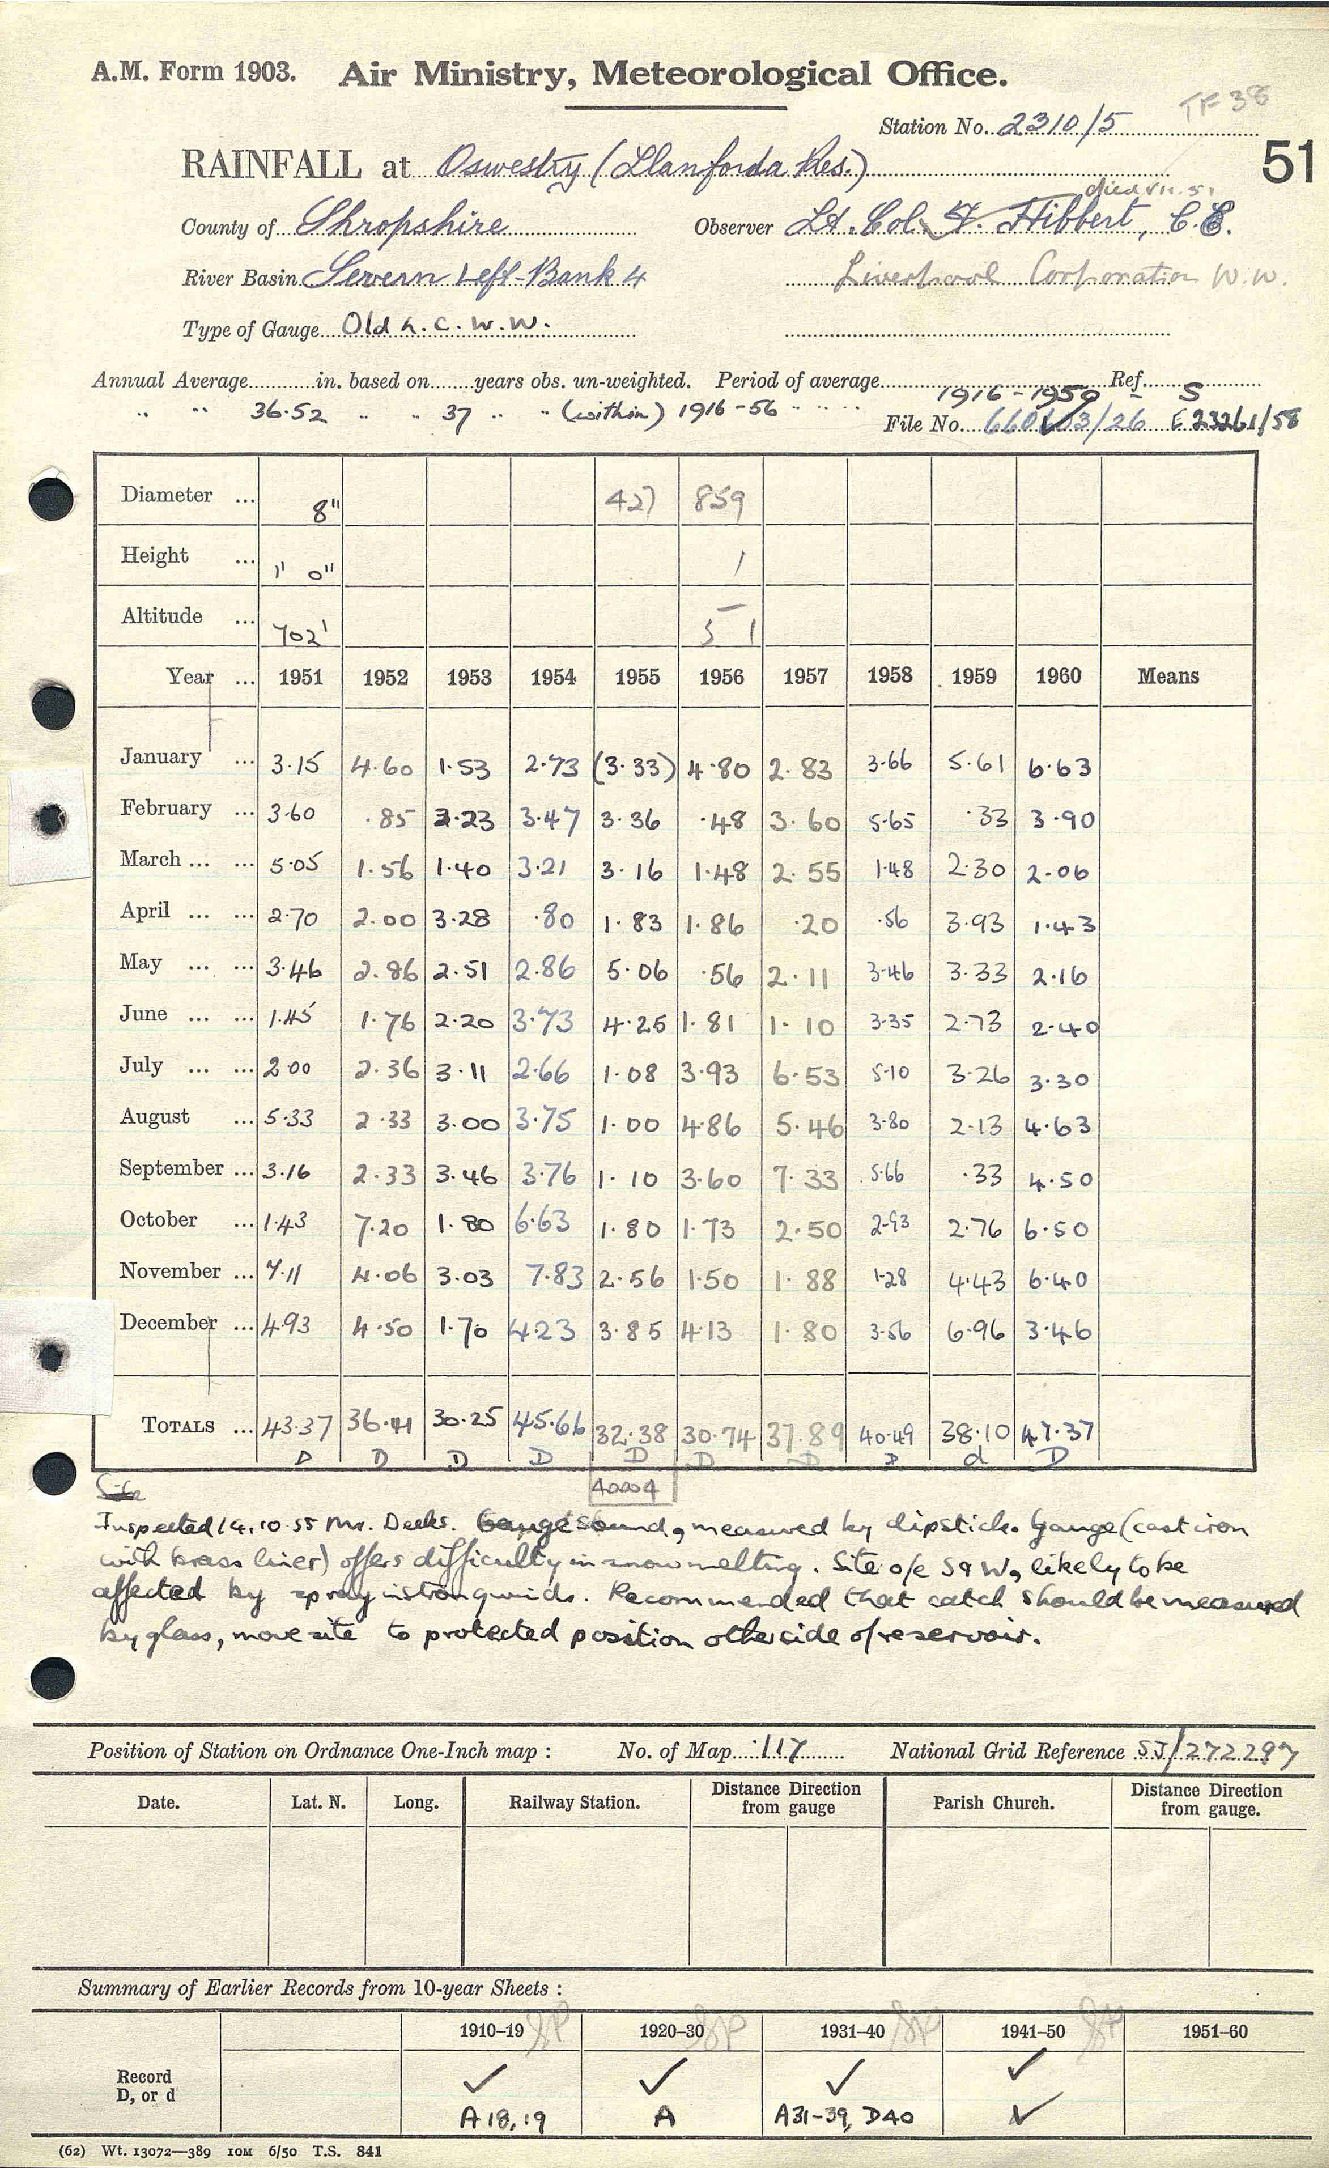 TF 38
A.M. Form 1903. Air Ministry, Meteorological Office.
Station No. 2310/5
51
RAINFALL at Oswestry (Llanforda Res.)
died VII.51
County of Shropshire Observer Lt. Col. F. Hibbert, C.E.
River Basin Severn Left Bank 4 Liverpool Corporation W.W.
Type of Gauge Old L.C.W.W.
Annual Average in. based on years obs. un-weighted. Period of average 1916-1950 Ref. S
" " 36.52 " " 37 " " (within) 1916-56 " " " "
File No. 660603/26 E23261/58
Diameter ... 8" 427 859
Height ... 1' 0" 1
Altitude ... 702' 5 1
Year ... 1951 1952 1953 1954 1955 1956 1957 1958 1959 1960 Means
January ... 3.15 4.60 1.53 2.73 (3.33) 4.80 2.83 3.66 5.61 6.63
February ... 3.60 .85 2.23 3.47 3.36 .48 3.60 5.65 .33 3.90
March ... ... 5.05 1.56 1.40 3.21 3.16 1.48 2.55 1.48 2.30 2.06
April ... ... 2.70 2.00 3.28 .80 1.83 1.86 .20 .56 3.93 1.43
May ... ... 3.46 2.86 2.51 2.86 5.06 .56 2.11 3.46 3.33 2.16
June ... ... 1.45 1.76 2.20 3.73 4.25 1.81 1.10 3.35 2.73 2.40
July ... ... 2.00 2.36 3.11 2.66 1.08 3.93 6.53 5.10 3.26 3.30
August ... 5.33 2.33 3.00 3.75 1.00 4.86 5.46 3.80 2.13 4.63
September ... 3.16 2.33 3.46 3.76 1.10 3.60 7.33 5.66 .33 4.50
October ... 1.43 7.20 1.80 6.63 1.80 1.73 2.50 2.93 2.76 6.50
November ... 7.11 4.06 3.03 7.83 2.56 1.50 1.88 1.28 4.43 6.40
December ... 4.93 4.50 1.70 4.23 3.85 4.13 1.80 3.56 6.96 3.46
TOTALS ... 43.37 36.41 30.25 45.66 32.38 30.74 37.89 40.49 38.10 47.37
D D D D D D D D d D
Site 40004
Inspected 19.10.55 Mr. Deeks. Gauge sound, measured by dipstick. Gauge (cast iron
with brass liner) offers difficulty in snow melting. Site o/e S & W, likely to be
affected by spray in strong winds. Recommended that catch should be measured
by glass, move site to protected position otherside of reservoir.
Position of Station on Ordnance One-Inch map : No. of Map 117 National Grid Reference SJ/272297
Date. Lat. N. Long. Railway Station. Distance Direction from gauge Parish Church. Distance Direction from gauge.
Summary of Earlier Records from 10-year Sheets :
1910–19 1920–30 1931–40 1941–50 1951–60
Record ✓ ✓ ✓ ✓
D, or d A18,19 A A31-39, D40 ✓
(62) Wt. 13072—389 10M 6/50 T.S. 841